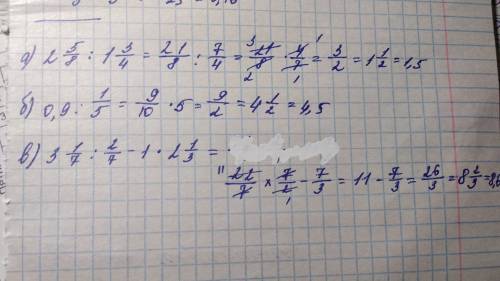 а) 2 5/8 : 1 3/4 = 21/8 : 7/4 = 21/8 · 4/7 = 3/2 = 1 1/2 = 1,5
б) 0,9 : 1/5 = 9/10 · 5 = 9/2 = 4 1/2 = 4,5
в) 3 1/7 : 2/7 - 1 · 2 1/3 =
22/7 × 7/2 - 7/3 = 11 - 7/3 = 26/3 = 8 2/3 = 8,6